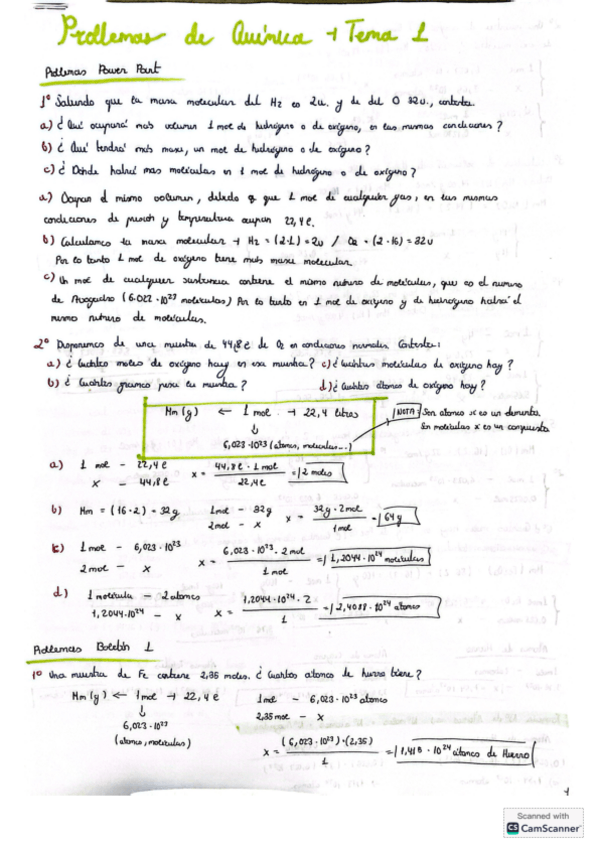 Problemas de Química → Tema 1
Problemas Power Point
1º Sabiendo que la masa molecular del H2 es 2u. y de del O 32u., contesta.
a) ¿Qué ocupará más volumen 1 mol de hidrógeno o de oxígeno, en las mismas condiciones?
b) ¿Qué tendrá más masa, un mol de hidrógeno o de oxígeno?
c) ¿Dónde habrá mas moléculas en 1 mol de hidrógeno o de oxígeno?
a) Ocupan el mismo volumen, debido a que 1 mol de cualquier gas, en las mismas
condiciones de presión y temperatura ocupan 22,4 l.
b) Calculamos la masa molecular → H2 = (2·1) = 2u / O2 = (2·16) = 32u
Por lo tanto 1 mol de oxígeno tiene más masa molecular.
c) Un mol de cualquier sustancia contiene el mismo número de moléculas, que es el número
de Avogadro (6.022 · 10²³ moléculas) Por lo tanto en 1 mol de oxígeno y de hidrógeno habrá el
mismo número de moléculas.
2º Disponemos de una muestra de 44,8 l de O2 en condiciones normales. Contesta:
a) ¿Cuántos moles de oxígeno hay en esa muestra? c) ¿Cuántas moléculas de oxígeno hay?
b) ¿Cuántos gramos pesa la muestra? d) ¿Cuántos átomos de oxígeno hay?
Mm (g) ← 1 mol → 22,4 litros
↓
6,023·10²³ (átomos, moléculas...)
NOTA Son átomos si es un elemento.
Son moléculas si es un compuesto
a) 1 mol - 22,4 l
x - 44,8 l
x = 44,8 l · 1 mol / 22,4 l = 2 moles
b) Mm = (16·2) = 32g
1 mol - 32g
2 mol - x
x = 32g · 2 mol / 1 mol = 64 g
c) 1 mol - 6,023·10²³
2 mol - x
x = 6,023 · 10²³ · 2 mol / 1 mol = 1,2044·10²⁴ moléculas
d) 1 molécula - 2 átomos
1,2044·10²⁴ - x
x = 1,2044·10²⁴ · 2 / 1 = 2,4088 · 10²⁴ átomos
Problemas Boletín 1
1º Una muestra de Fe contiene 2,35 moles. ¿Cuántos átomos de hierro tiene?
Mm (g) ← 1 mol → 22,4 l
↓
6,023·10²³
(átomos, moléculas)
1 mol - 6,023·10²³ átomos
2,35 mol - x
x = (6,023·10²³)·(2,35) / 1 = 1,415 · 10²⁴ átomos de Hierro
1
Scanned with
CS CamScanner